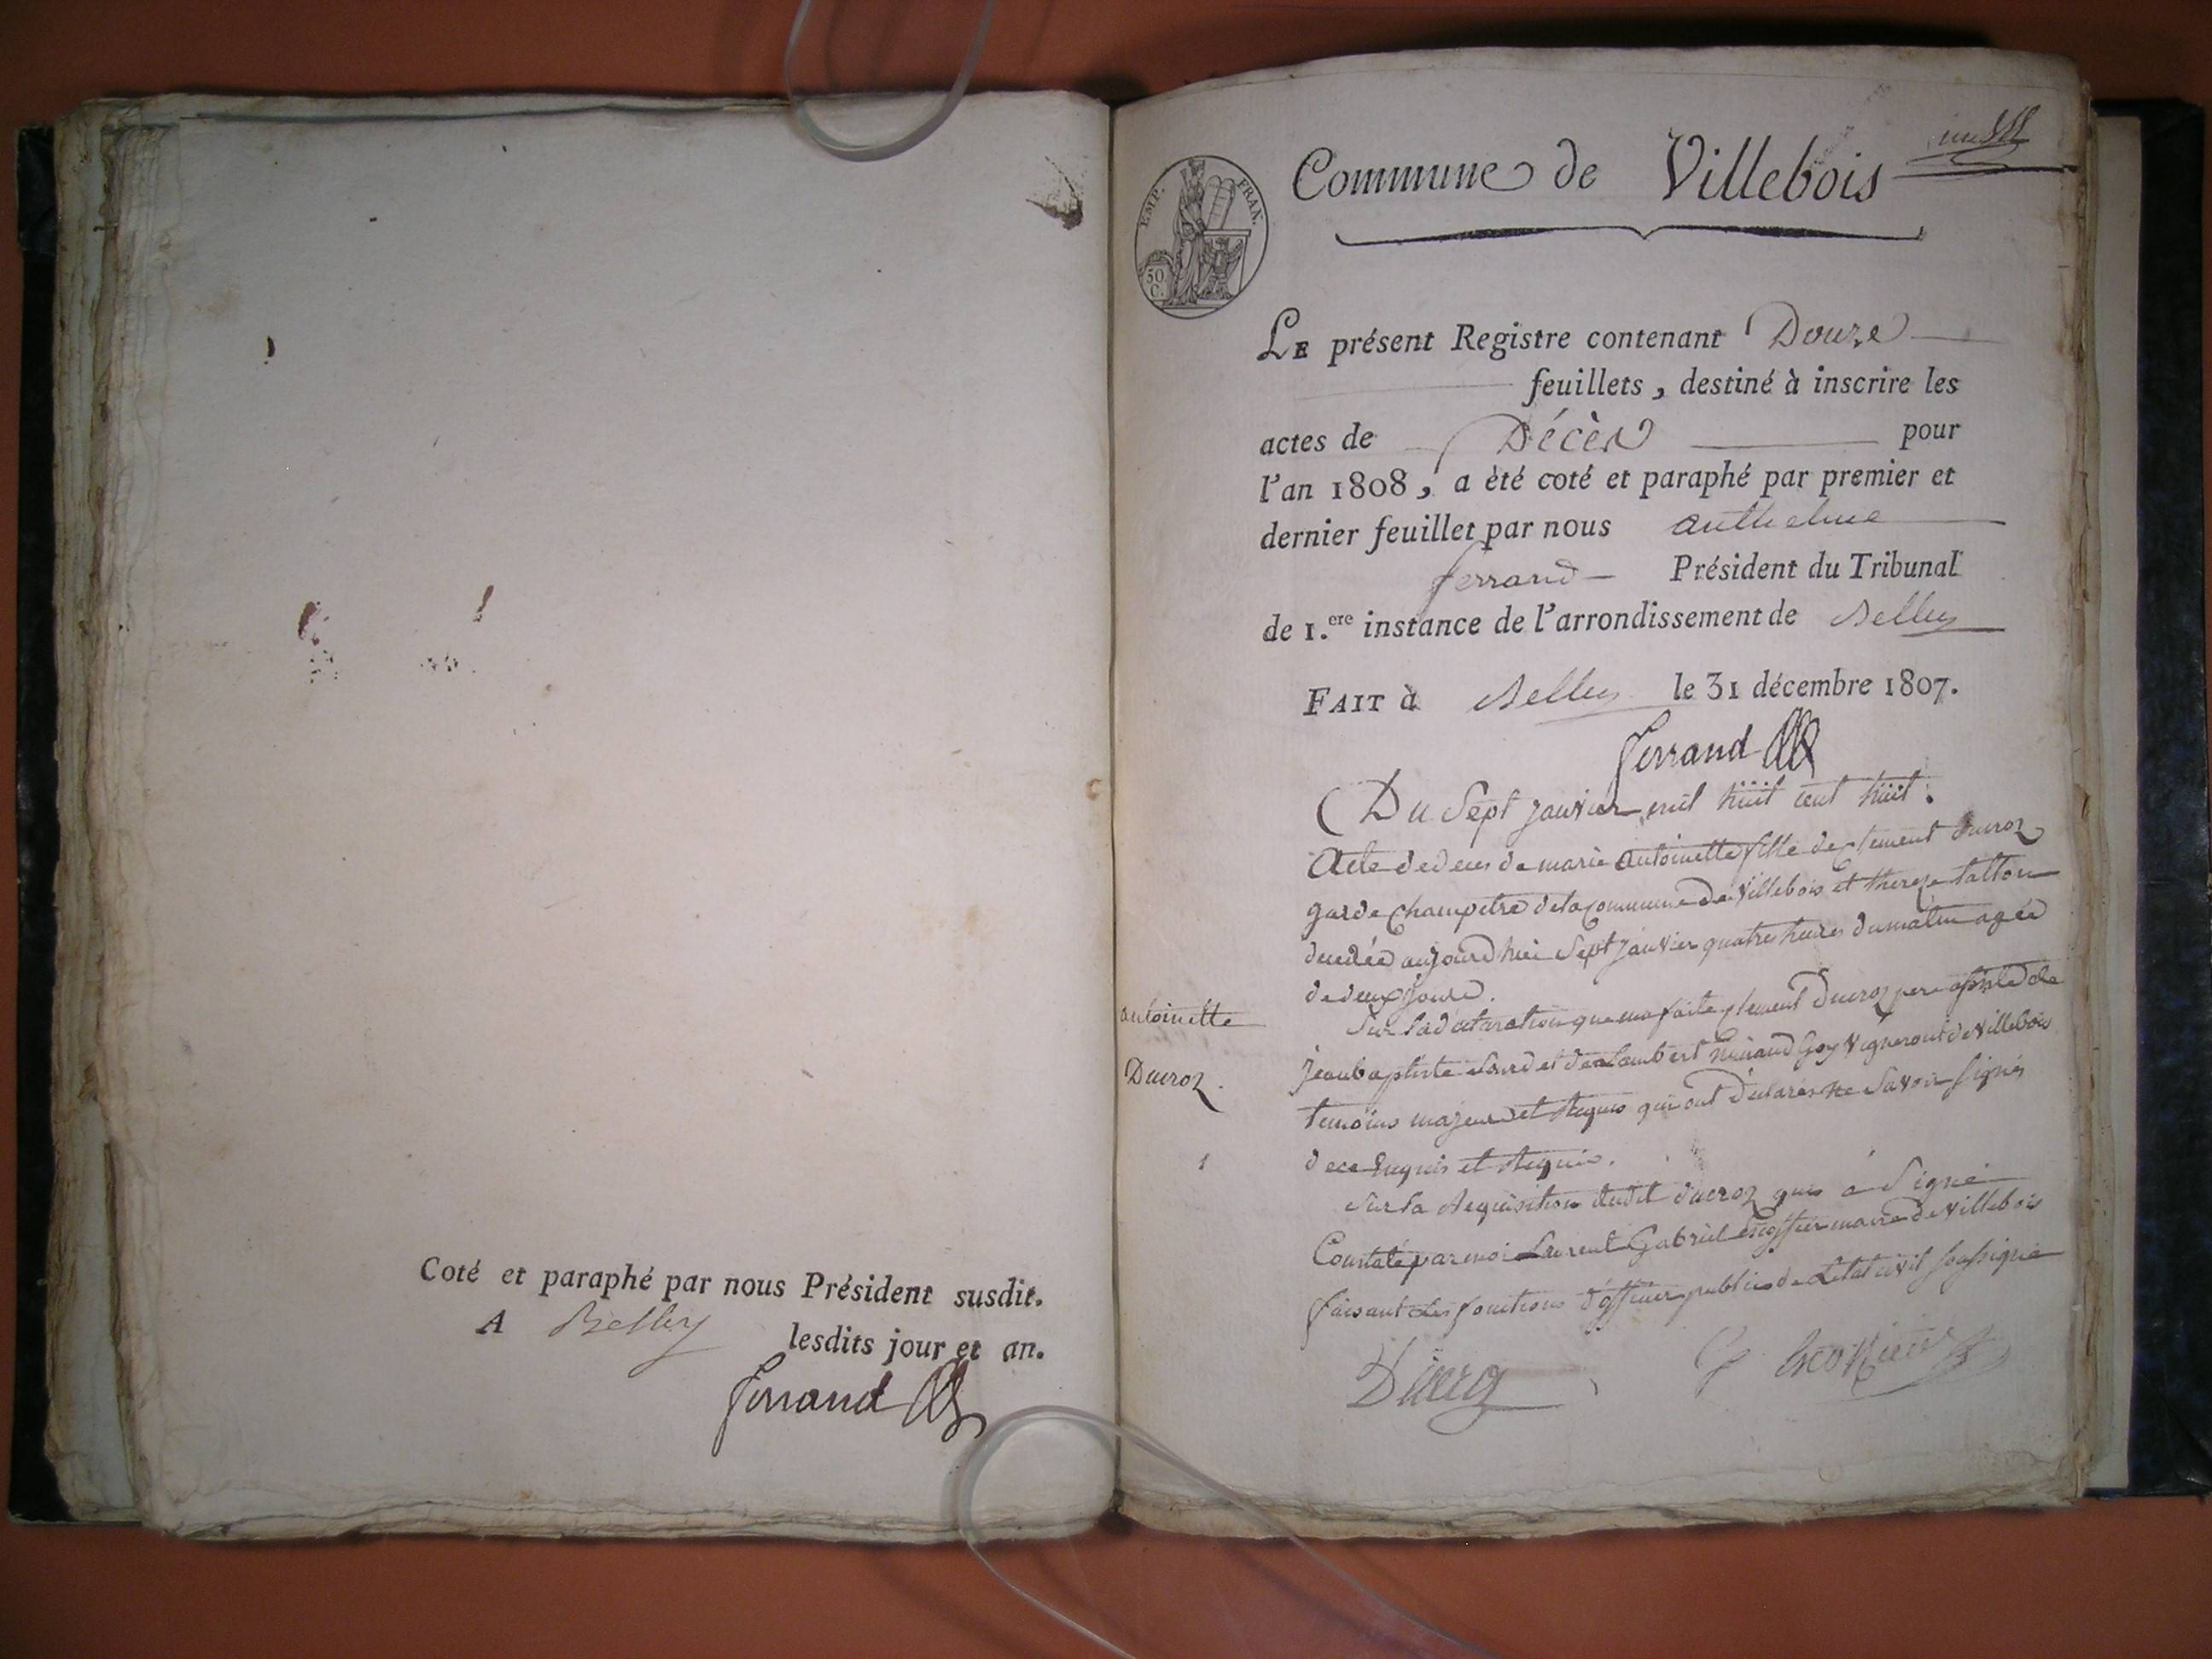 Coté et paraphé par nous Président susdit.
A Belley lesdits jour et an.
Ferrand
Commune de Villebois
EMP. FRAN.
50
C.
LE présent Registre contenant Douze
feuillets, destiné à inscrire les
actes de Décès pour
l'an 1808, a èté coté et paraphé par premier et
dernier feuillet par nous anthelme
ferrand Président du Tribunal
de 1.ere instance de l'arrondissement de Belley
FAIT à Belley le 31 décembre 1807.
Ferrand
Du Sept janvier mil huit cent huit.
Acte de deces de marie antoinette fille de clement ducroz
garde champetre de la commune de Villebois et therese
decedée aujourd'hui Sept janvier quatres heures du matin agée
de deux jours.
antoinette
Ducroz.
1
Sur la declaration que ma faite clement Ducroz pere assisté de
jean baptiste et de Lambert Goy Vignerons de Villebois
temoins majeurs et requis qui ont declarés ne Savoir signés
de ce enquis et requis.
Sur la requisition dudit ducroz qui a Signé
Constaté par moi Laurent Gabriel Escoffier maire de Villebois
faisant les fonctions d'officier public de Letat civil soussigné
Ducroz
G Escoffier